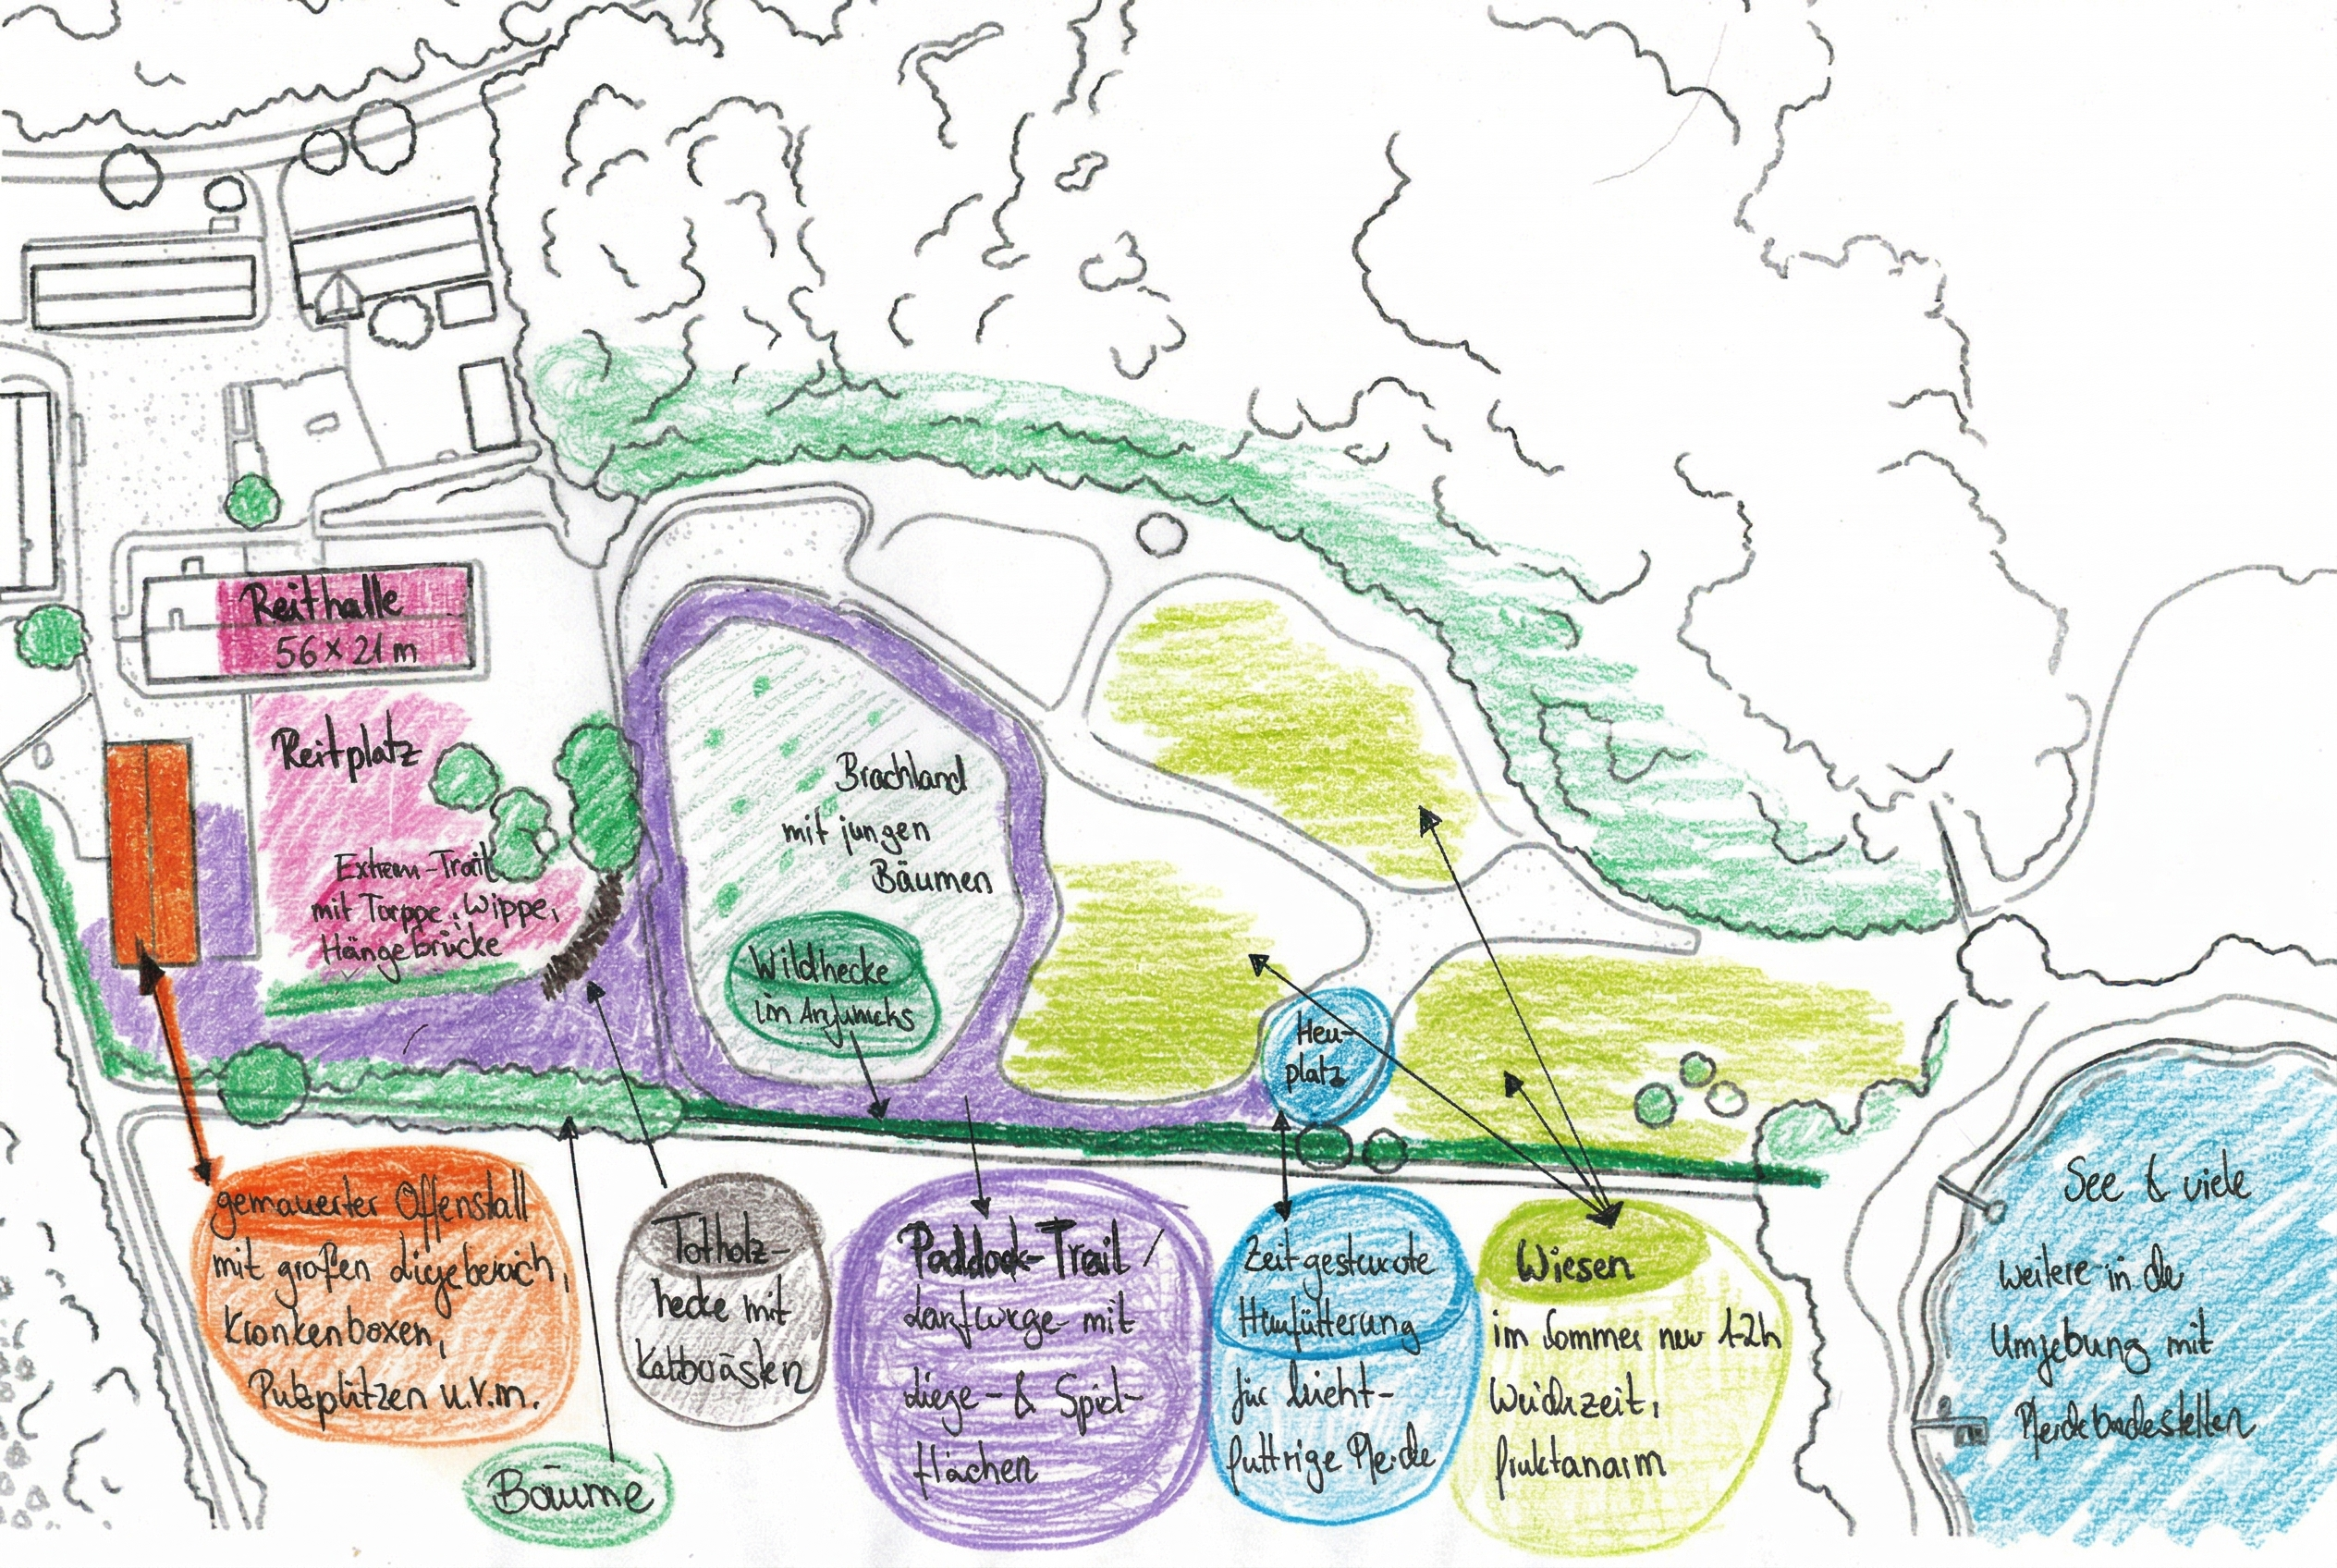 Reithalle
56 x 21 m
Reitplatz
Extrem-Trail
mit Torppe, Wippe,
Hängebrücke
Brachland
mit jungen
Bäumen
Wildhecke
im
Heu-
platz
gemauerter Offenstall
mit großen Liegebereich,
Krankenboxen,
Putzplätzen u.v.m.
Bäume
Totholz-
hecke mit
Paddock-Trail /
mit
Liege- & Spiel-
flächen
Zeitgesteuerte
Heufütterung
für leicht-
futtrige Pferde
Wiesen
im Sommer nur 1-2h
Weidezeit,
fruktanarm
See & viele
weitere in der
Umgebung mit
Pferdebadestellen